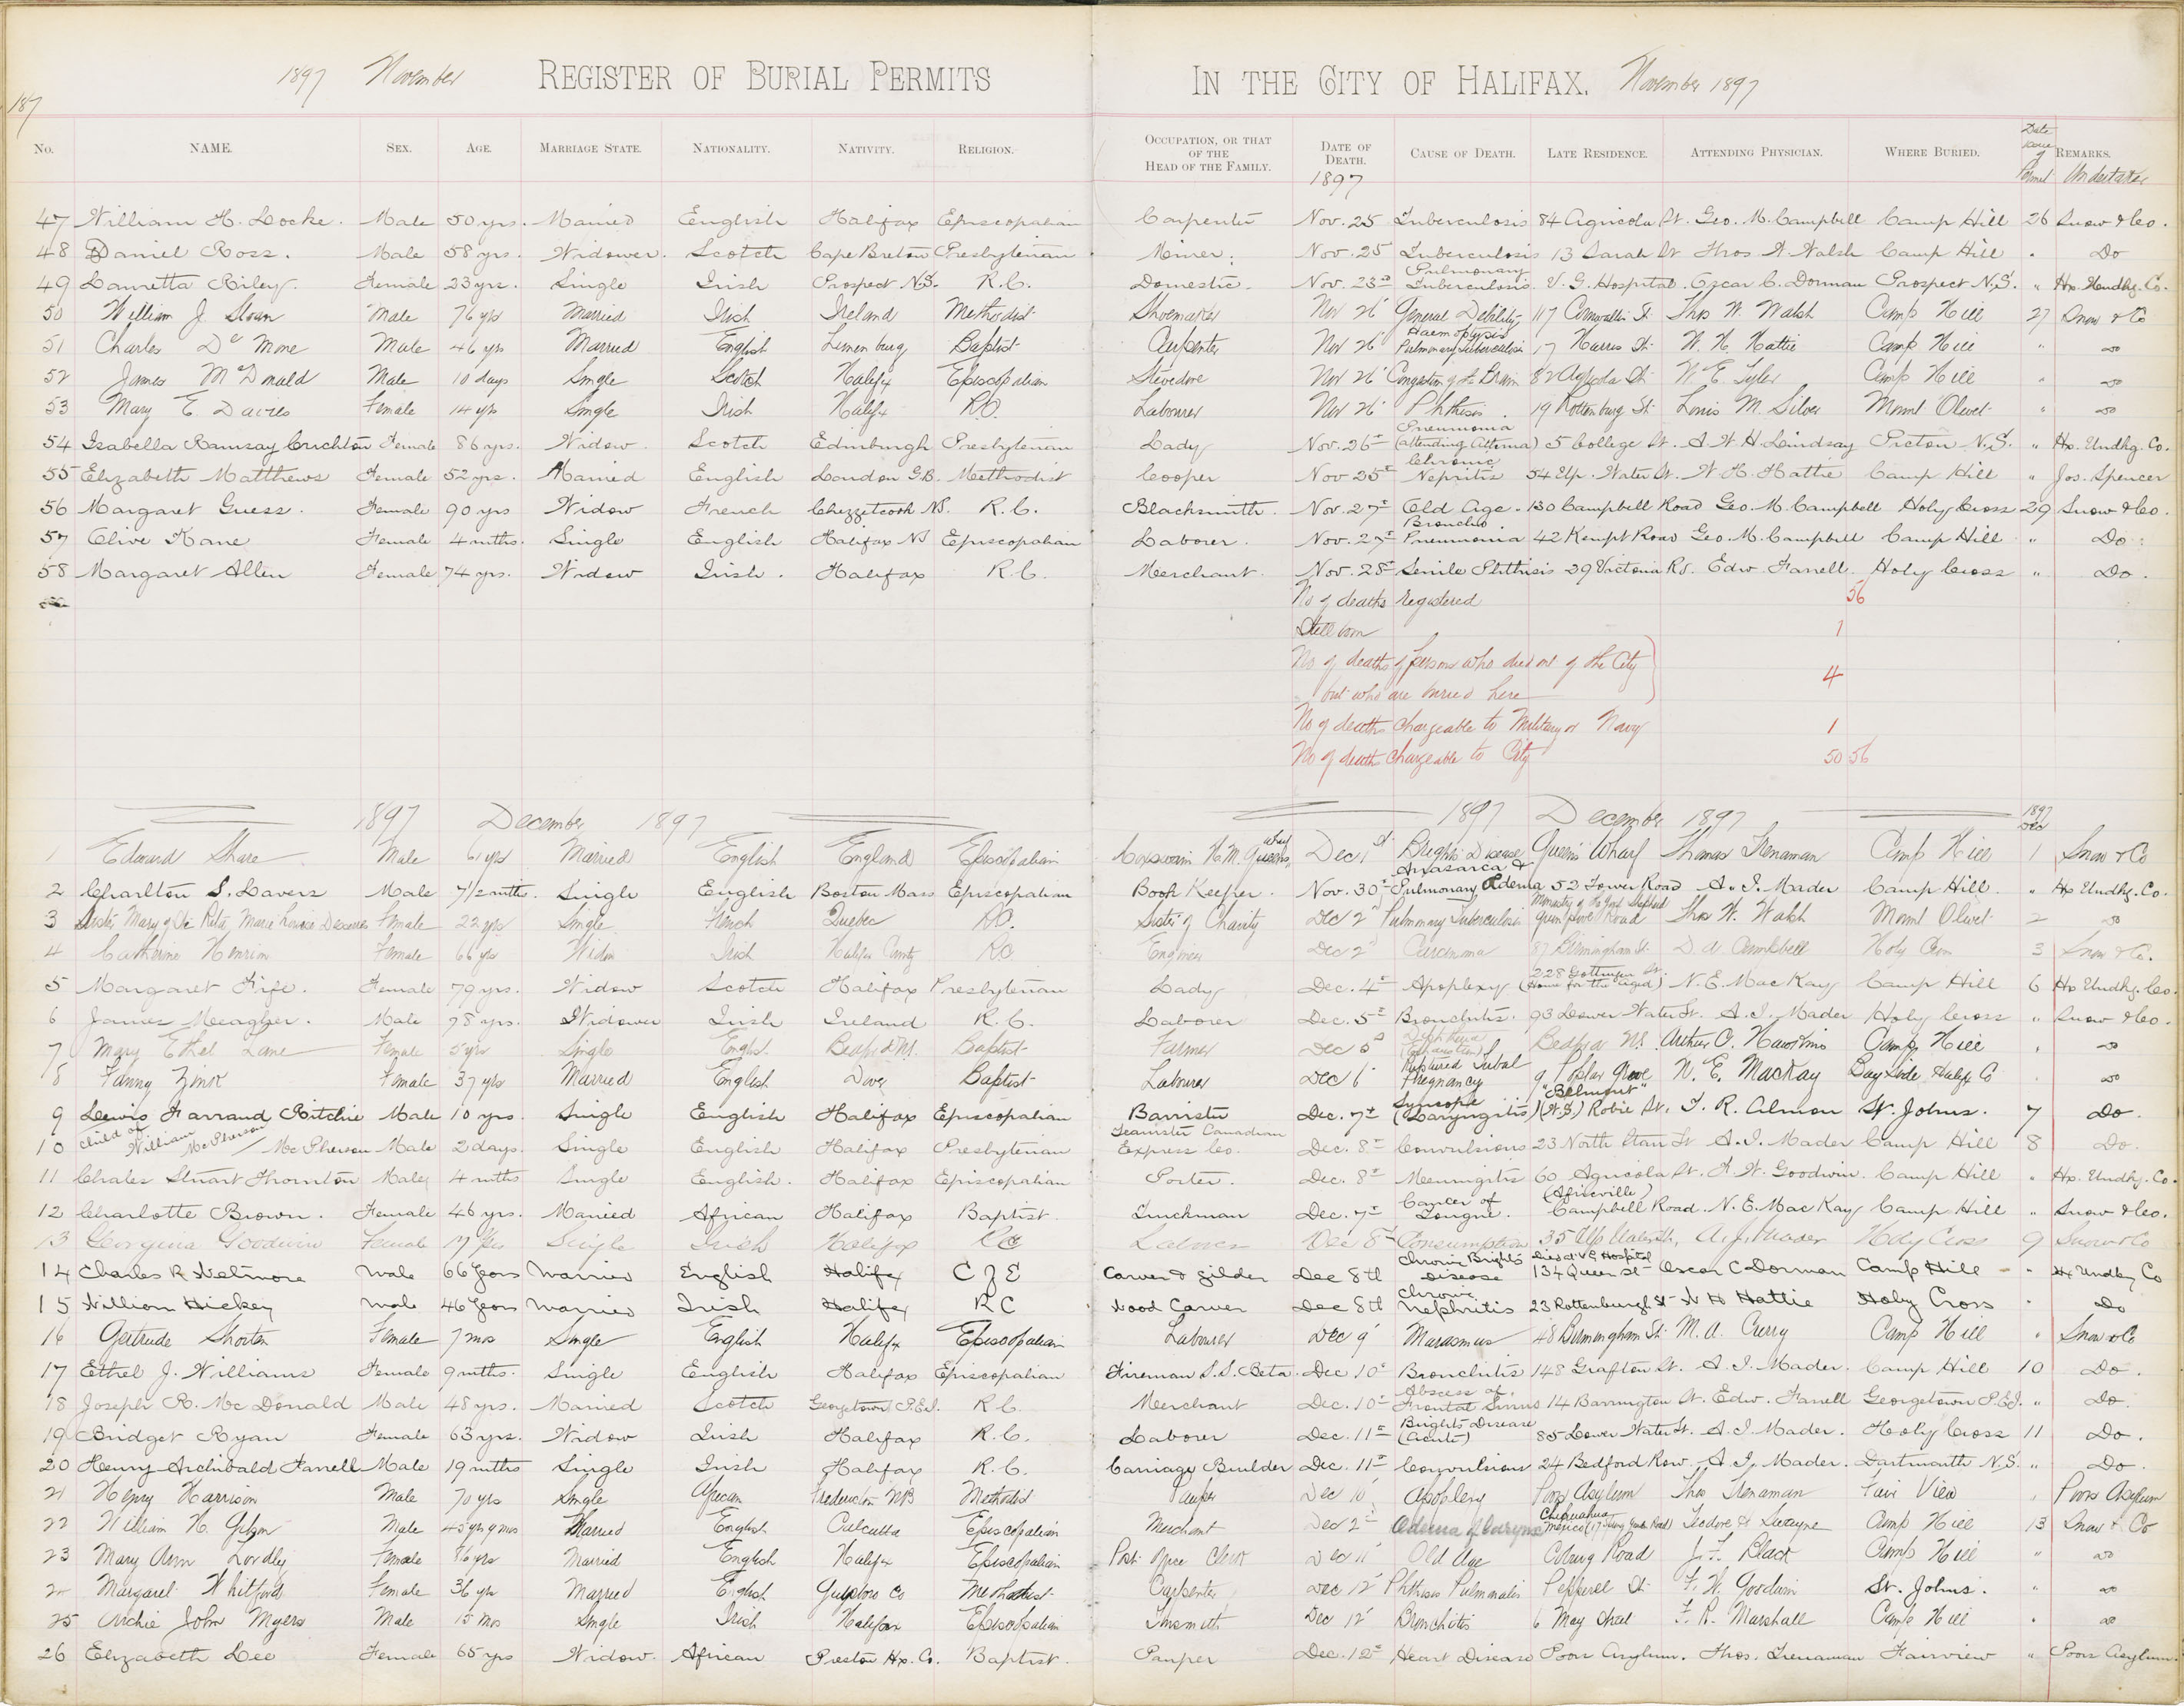 187
1897 November REGISTER OF BURIAL PERMITS IN THE CITY OF HALIFAX. November 1897
No. NAME. SEX. AGE. MARRIAGE STATE. NATIONALITY. NATIVITY. RELIGION. OCCUPATION, OR THAT OF THE HEAD OF THE FAMILY. DATE OF DEATH. 1897 CAUSE OF DEATH. LATE RESIDENCE. ATTENDING PHYSICIAN. WHERE BURIED. Date Issue of Permit REMARKS. Undertaker
47 William H. Locke. Male 50 yrs. Married English Halifax Episcopalian Carpenter Nov. 25 Tuberculosis 84 Agricola St. Geo. M. Campbell Camp Hill 26 Snow & Co.
48 Daniel Ross. Male 58 yrs. Widower. Scotch Cape Breton Presbyterian Miner. Nov. 25 Tuberculosis 13 Sarah St Thos W. Walsh Camp Hill " Do
49 Lauretta Riley. Female 23 yrs. Single Irish Prospect N.S. R.C. Domestic. Nov. 23rd Pulmonary Tuberculosis. V. G. Hospital. Oscar C. Dorman Prospect N.S. " Hx. Undkg. Co.
50 William J. Sloan Male 76 yrs Married Irish Ireland Methodist Shoemaker Nov 26 General Debility 117 Cornwallis St. Thos W. Walsh Camp Hill 27 Snow & Co
51 Charles De Mone Male 46 yrs Married English Lunenburg Baptist Carpenter Nov 26 Haemoptysis Pulmonary Tuberculosis 17 Harris St. W. H. Hattie Camp Hill " do
52 James McDonald Male 10 days Single Scotch Halifx Episcopalian Stevedore Nov 26 Congestion of the Brain 82 Agricola St. W. E. Tyler Camp Hill " do
53 Mary E. Davies Female 14 yrs Single Irish Halifx R.C. Labourer Nov 26 Phthisis. 19 Rottenburg St. Louis M. Silver Mount Olivet " do
54 Isabella Ramsay Crichton Female 86 yrs. Widow. Scotch Edinburgh Presbyterian Lady Nov. 26th Pneumonia (attending Asthma) 5 College St. A. W. H. Lindsay Pictou N.S. " Hx. Undkg. Co.
55 Elizabeth Matthews Female 52 yrs. Married English London G.B. Methodist Cooper Nov 25th Chronic Nepritis 54 Up. Water St. W. H. Hattie Camp Hill " Jos. Spencer
56 Margaret Guess. Female 90 yrs Widow French Chezzetcook N.S. R.C. Blacksmith. Nov. 27th Old Age. 130 Campbell Road Geo. M. Campbell Holy Cross 29 Snow & Co.
57 Olive Kane Female 4 mths. Single English Halifax N.S Episcopalian Laborer. Nov. 27th Broncho Pneumonia 42 Kempt Road Geo. M. Campbell Camp Hill " Do.
58 Margaret Allen Female 74 yrs. Widow Irish. Halifax R.C. Merchant. Nov. 28th Senile Phthisis 29 Victoria Rd. Edw Farrell. Holy Cross " Do.
No of deaths registered 56
Still born 1
No of deaths of persons who died out of the City
but who are buried here 4
No of deaths chargeable to Military or Navy 1
No of deaths chargeable to City 50 56
1897 December 1897 1897 December 1897 1897 Dec
1 Edward Share Male 61 yrs Married English England Episcopalian Coxswain H.M. Queens Wharf Dec 1st Brights Disease Queens Wharf Thomas Trenaman Camp Hill 1 Snow & Co
2 Charlton S. Lavers Male 7 1/2 mths. Single English Boston Mass Episcopalian Book Keeper. Nov. 30th Anasarca & Pulmonary Œdema 52 Tower Road A. I. Mader Camp Hill. " Hx Undkg. Co.
3 Sister Mary of Ste Rita, Marie Louise Female 22 yrs Single French Quebec R.C. Sister of Charity Dec 2nd Pulmonary Tuberculosis Monastry of the Good Shepherd Quinpool Road Thos W. Walsh Mount Olivet 2 do
4 Catherine Female 66 yrs Widow Irish Halifax County R.C. Engineer Dec 2nd Carcinoma 87 Birmingham St. D. A. Campbell Holy Cross 3 Snow & Co.
5 Margaret Fife. Female 79 yrs. Widow Scotch Halifax Presbyterian Lady Dec. 4th Apoplexy 228 Gottingen St. (Home for the Aged) N. E. MacKay Camp Hill 6 Hx Undkg. Co.
6 James Meagher. Male 78 yrs. Widower Irish Ireland R.C. Laborer Dec. 5th Bronchitis. 93 Lower Water St. A. I. Mader Holy Cross " Snow & Co.
7 Mary Ethel Lane Female 5 yrs Single English Bedford N.S. Baptist Farmer Dec 5th Diphtheria (Exhaustion) Bedford N.S. Arthur C. Hawkins Camp Hill " do
8 Fanny Zink Female 37 yrs Married English Dover Baptist Labourer Dec 6 Ruptured Tubal Pregnancy 9 Poplar Grove N. E. MacKay Bay Side Halifx Co " do
9 Lewis Farrand Ritchie Male 10 yrs. Single English Halifax Episcopalian Barrister Dec. 7th Syncope (Laryngitis) "Belmont" (N.S.) Robie St. T. R. Almon St. Johns. 7 Do.
10 Child of William McPherson / McPherson Male 2 days. Single English Halifax Presbyterian Teamster Canadian Express Co. Dec. 8th Convulsions 23 North Stan St A. I. Mader Camp Hill 8 Do.
11 Chales Stuart Thornton Male 4 mths Single English. Halifax Episcopalian Porter. Dec. 8th Meningitis 60 Agricola St. F. W. Goodwin. Camp Hill " Hx. Undkg. Co.
12 Charlotte Brown. Female 46 yrs. Married African Halifax Baptist. Truckman Dec. 7th Cancer of Tongue. (Africville) Campbell Road. N. E. Mac Kay Camp Hill " Snow & Co.
13 Georgina Goodwin Female 17 yrs Single Irish Halifax RC Laborer Dec 8th Consumption 35 Up Water St. A. I. Mader Holy Cross 9 Snow & Co
14 Charles R Wetmore Male 66 years Married English Halifax C of E Carver & Gilder Dec 8th Chronic Brights Disease Died at VG Hospital 134 Queen St Oscar C Dorman Camp Hill " Hx Undkg Co
15 William Hickey Male 46 years Married Irish Halifax RC Wood Carver Dec 8th Chronic Nephritis 23 Rottenburgh St W H Hattie Holy Cross " Do
16 Gertrude Shorten Female 7 mos Single English Halifx Episcopalian Labourer Dec 9 Marasmus 48 Birmingham St. M. A. Curry Camp Hill " Snow & Co
17 Ethel J. Williams Female 9 mths. Single English Halifax Episcopalian Fireman S.S. Beta. Dec 10th Bronchitis 148 Grafton St. A. I. Mader. Camp Hill 10 Do.
18 Joseph R. Mc Donald Male 48 yrs. Married Scotch Georgetown P.E.I. R.C. Merchant Dec. 10th Abscess of Frontal Sinus 14 Barrington St. Edw. Farrell Georgetown P.E.I. " Do.
19 Bridget Ryan Female 63 yrs. Widow Irish Halifax R.C. Laborer Dec. 11th Brights Disease (Acute) 85 Lower Water St. A. I. Mader. Holy Cross 11 Do.
20 Henry Archibald Farrell Male 19 mths Single Irish Halifax R.C. Carriage Builder Dec. 11th Convulsions 24 Bedford Row. A. I. Mader. Dartmouth N.S. " Do.
21 Henry Harrison Male 70 yrs Single African Fredericton NB Methodist Pauper Dec 10 Apoplexy Poors Asylum Thos Trenaman Fair View " Poors Asylum
22 William H. Male 45 yrs 9 mos Married English Calcutta Episcopalian Merchant Dec 2nd Odema of larynx Chihuahua Mexico Camp Hill 13 Snow & Co
23 Mary Ann Lordly Female 76 yrs Married English Halifx Episcopalian Post Office Clerk Dec 11 Old Age Coburg Road J. F. Black Camp Hill " do
24 Margaret Whitford Female 36 yrs Married English Guysboro Co Methodist Carpenter Dec 12 Phthisis Pulmonalis Pepperel St. F. W. Goodwin St. Johns. " do
25 Archie John Myers Male 15 mos Single Irish Halifax Episcopalian Tinsmith Dec 12 Bronchitis 6 May Street F. R. Marshall Camp Hill " do
26 Elizabeth Lee Female 65 yrs Widow. African Preston Hx. Co. Baptist. Pauper Dec. 12th Heart Disease Poors Asylum. Thos. Trenaman Fairview " Poors Asylum.